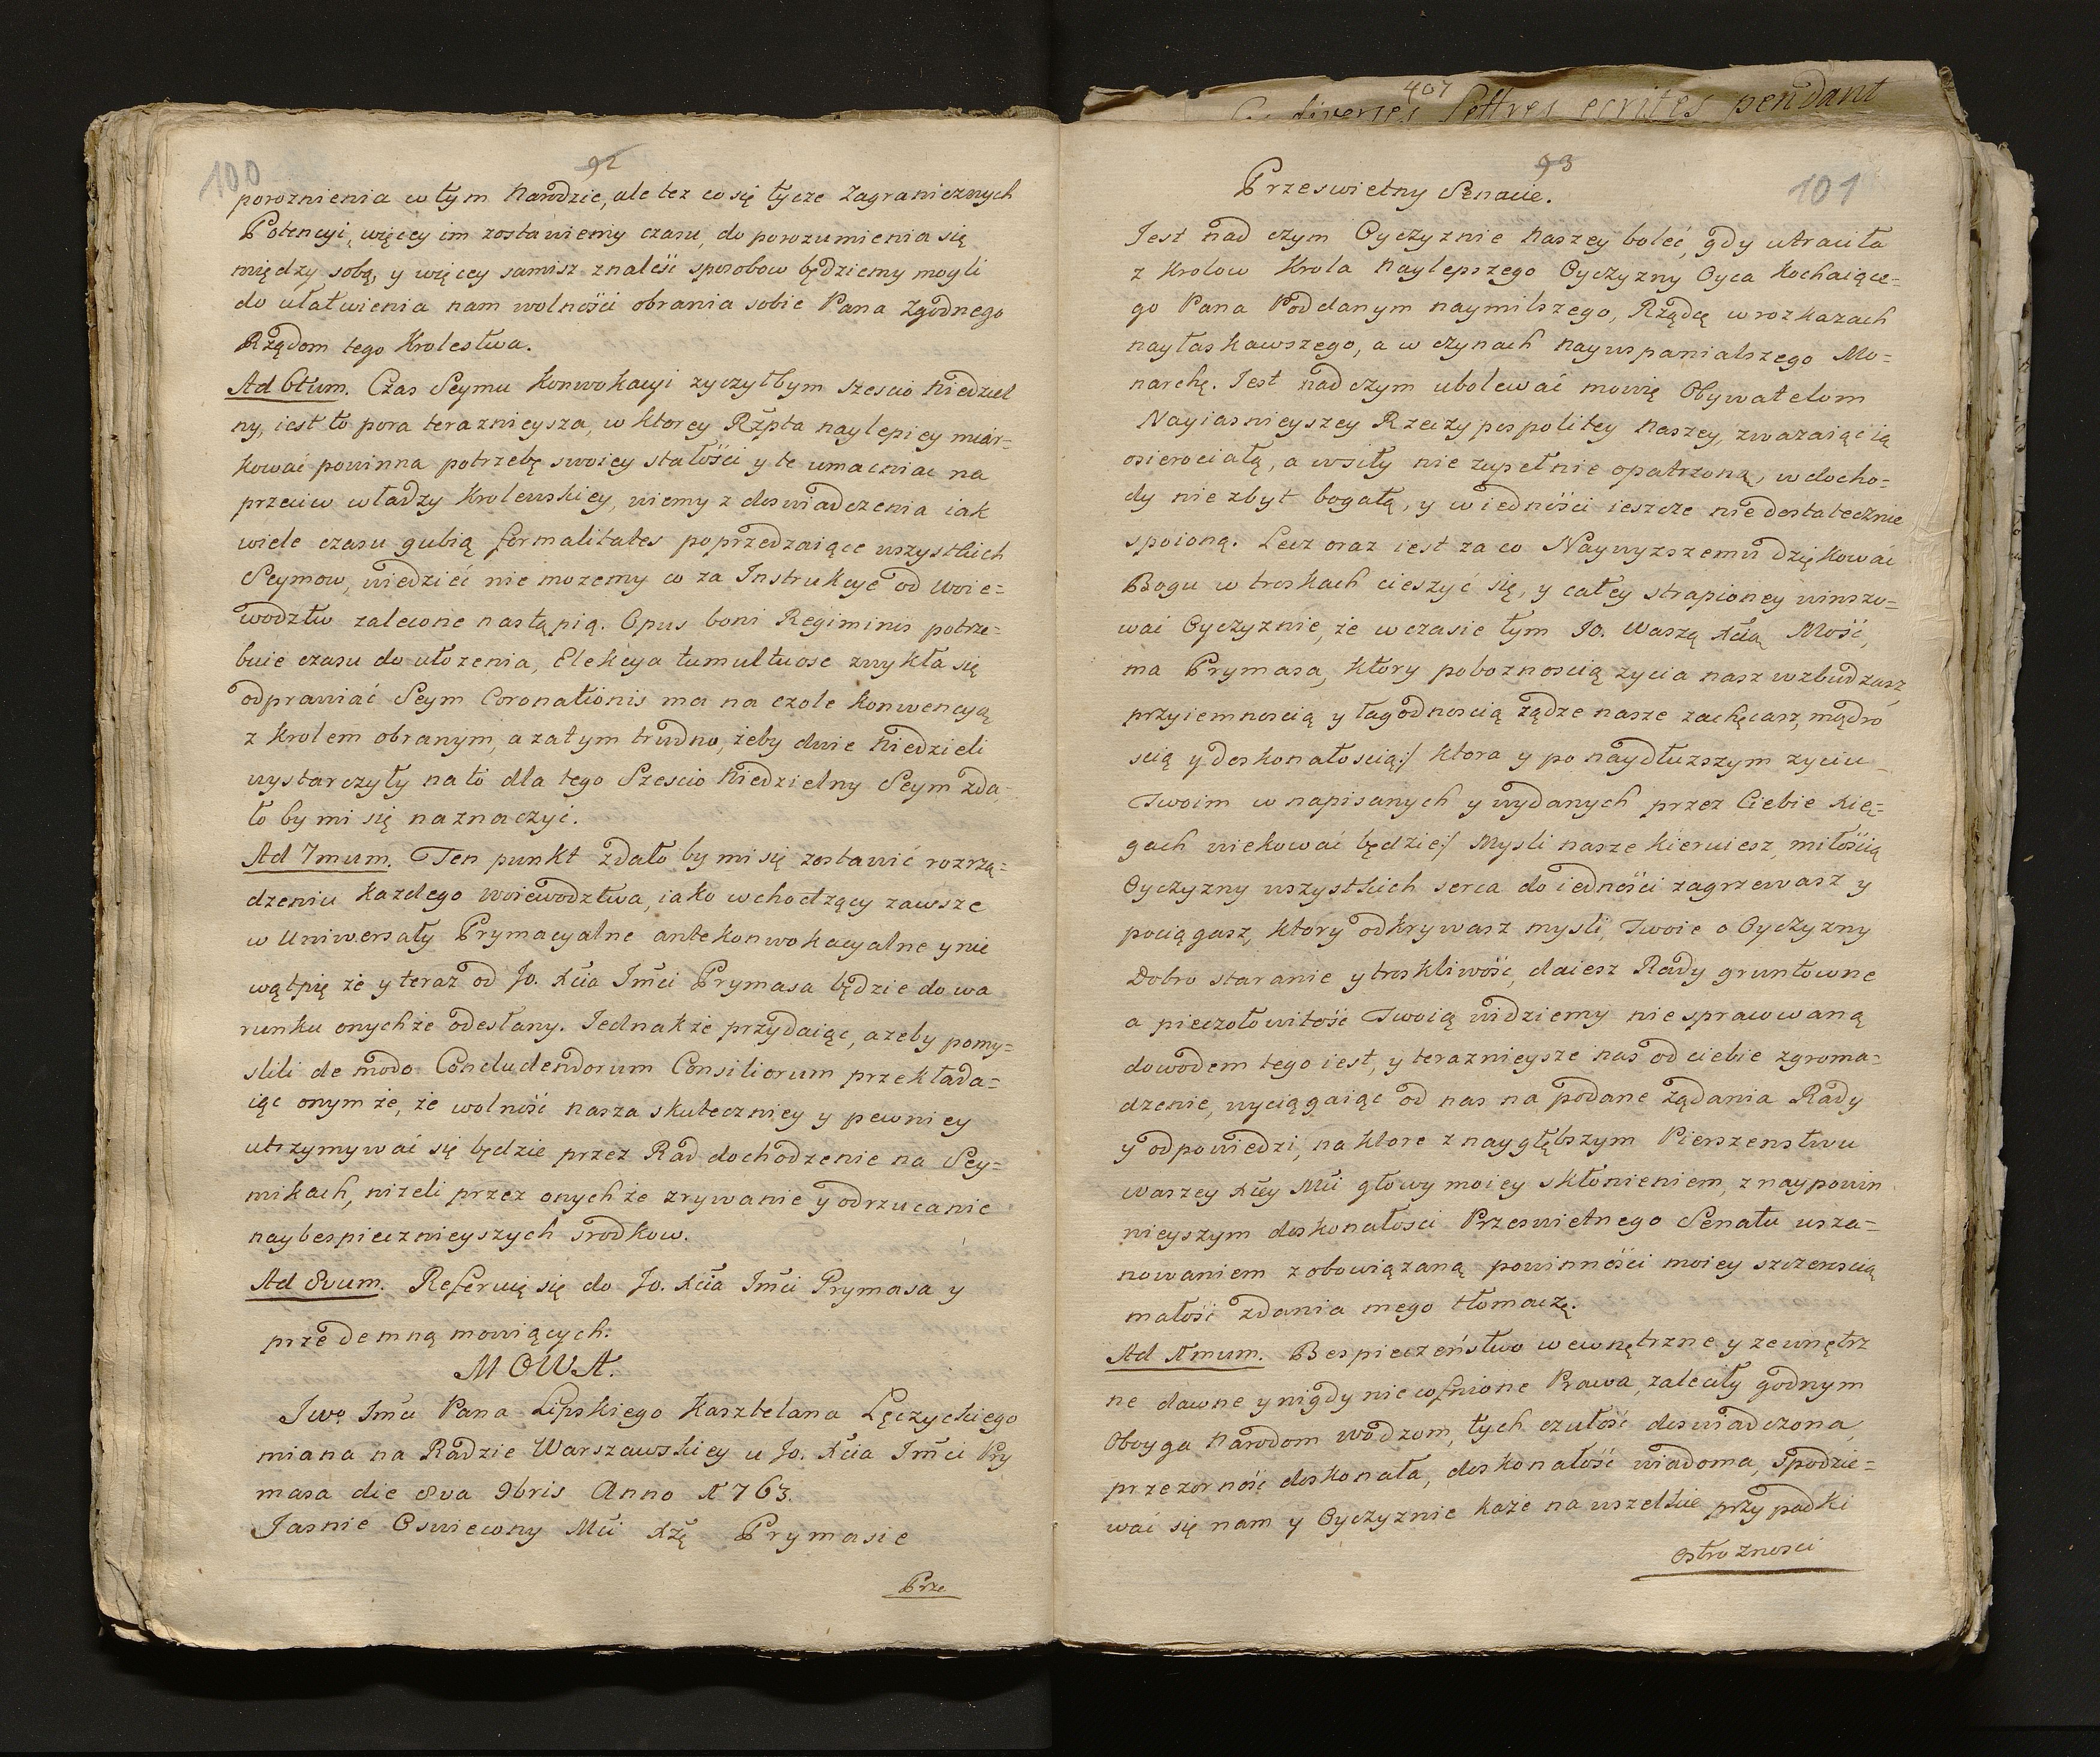 100
92
poroznienia w tym Narodzie, ale tez co się tycze Zagranicznych
Potencyi, więcey im zostawiemy czasu, do porozumienia się
między sobą, y więcey samisz znaleść sposobow będziemy mogli
do ułatwienia nam wolności obrania sobie Pana Zgodnego
Rządom tego Krolestwa.
Ad 6tum. Czas Seymu Konwokacyi zyczyłbym szescio Niedziel
ny, iest to pora teraznieysza, w ktorey Rzpta naylepiey miar-
kować powinna potrzebę swoiey stałości y te umacniac na
przeciw władzy Krolewskiey, wiemy z doswiadczenia iak
wiele czasu gubią formalitates poprzedzaiące wszystkich
Seymow, wiedzieć nie mozemy co za Instrukcye od Woie=
wodztw zalecone nastąpią. Opus boni Regiminis potrze-
buie czasu do ułozenia, Elekcya tumultuose zwykła się
odprawiać Seym Coronationis ma na czole konwencyą
z Krolem obranym, a zatym trudno, żeby dwie Niedzieli
wystarczyły na to dla tego Szescio Niedzielny Seym zda-
ło by mi się naznaczyć.
Ad 7mum. Ten punkt zdało by mi się zostawić rozrzą-
dzeniu kazdego woiewodztwa, iako wchodzący zawsze
w Uniwersały Prymacyalne antekonwokacyalne y nie
wątpię że y teraz od Jo. Xcia Jmci Prymasa będzie do wa
runku onychże odesłany. Jednakże przydaiąc, azeby pomy=
slili de modo Concludendorum Consiliorum przekłada=
iąc onymże, że wolność nasza skuteczniey y pewniey
utrzymywać się będzie przez Rad dochodzenie na Sey=
mikach, nizeli przez onychże zrywanie y odrzucanie
naybespiecznieyszych srodkow.
Ad 8vum. Referuię się do Jo. Xcia Jmci Prymasa y
przedemną mowiących.
MOWA.
Jwo Jmci Pana Lipskiego Kasztelana Łęczyckiego
miana na Radzie Warszawskiey u Jo. Xcia Jmci Pry
masa die 8va 9bris Anno 1763.
Jasnie Oswiecony Mci Xżę Prymasie
Prze
407
diverses lettres ecrites pendant
93
101
Przeswietny Senacie.
Iest nad czym Oyczyznie Naszey boleć, gdy utraciła
z Krolow Krola Naylepszego Oyczyzny Oyca Kochaiące=
go Pana Poddanym naymilszego, Rządcę w rozkazach
nayłaskawszego, a w czynach Naywspanialszego Mo=
narchę. Iest nad czym ubolewać mowię Obywatelom
Nayiasnieyszey Rzeczypospolitey Naszey, zwazaiąc ią
osierociałą, a w siły nie zupełnie opatrzoną, w docho=
dy nie zbyt bogatą, y w iedności ieszcze niedostatecznie
spoioną. Lecz oraz iest za co Naywyzszemu dziękować
Bogu w troskach cieszyć się, y całey strapioney winszo=
wać Oyczyznie, że w czasie tym Jo. Waszą Xcią Mość,
ma Prymasa, ktory poboznoscią zycia nasz wzbudzasz,
przyiemnoscią y łagodnoscią ządze nasze zachęcasz, mądro
scią y doskonałoscią:/ ktora y po naydłuzszym zyciu
Twoim w napisanych y wydanych przez Ciebie Xię=
gach wiekować będzie:/ Mysli nasze kieruiesz, miłością
Oyczyzny wszystkich serca do iedności zagrzewasz y
pociągasz, ktory odkrywasz mysli, Twoie o Oyczyzny
Dobro staranie y troskliwość, daiesz Rady gruntowne
a pieczołowitość Twoią widziemy niespracowaną
dowodem tego iest, y teraznieysze nas od ciebie zgroma=
dzenie, wyciągaiąc od nas na podane ządania Rady
y odpowiedzi, na ktore z naygłębszym Pierszenstwu
waszey Xcey Mci głowy moiey skłonieniem, z naypowin
nieyszym doskonałosci Przeswietnego Senatu usza=
nowaniem z obowiązaną powinności moiey szczeroscią
małość zdania mego tłomaczę.
Ad 1mum. Bespieczeństwo wewnętrzne y zewnętrz
ne dawne y nigdy nie cofnione Prawa, zaleciły godnym
Oboyga Narodom wodzom, tych czułość doswiadczona,
przezorność doskonała, doskonałość wiadoma, spodzie=
wać się nam y Oyczyznie każe na wszelkie przypadki
ostroznosci